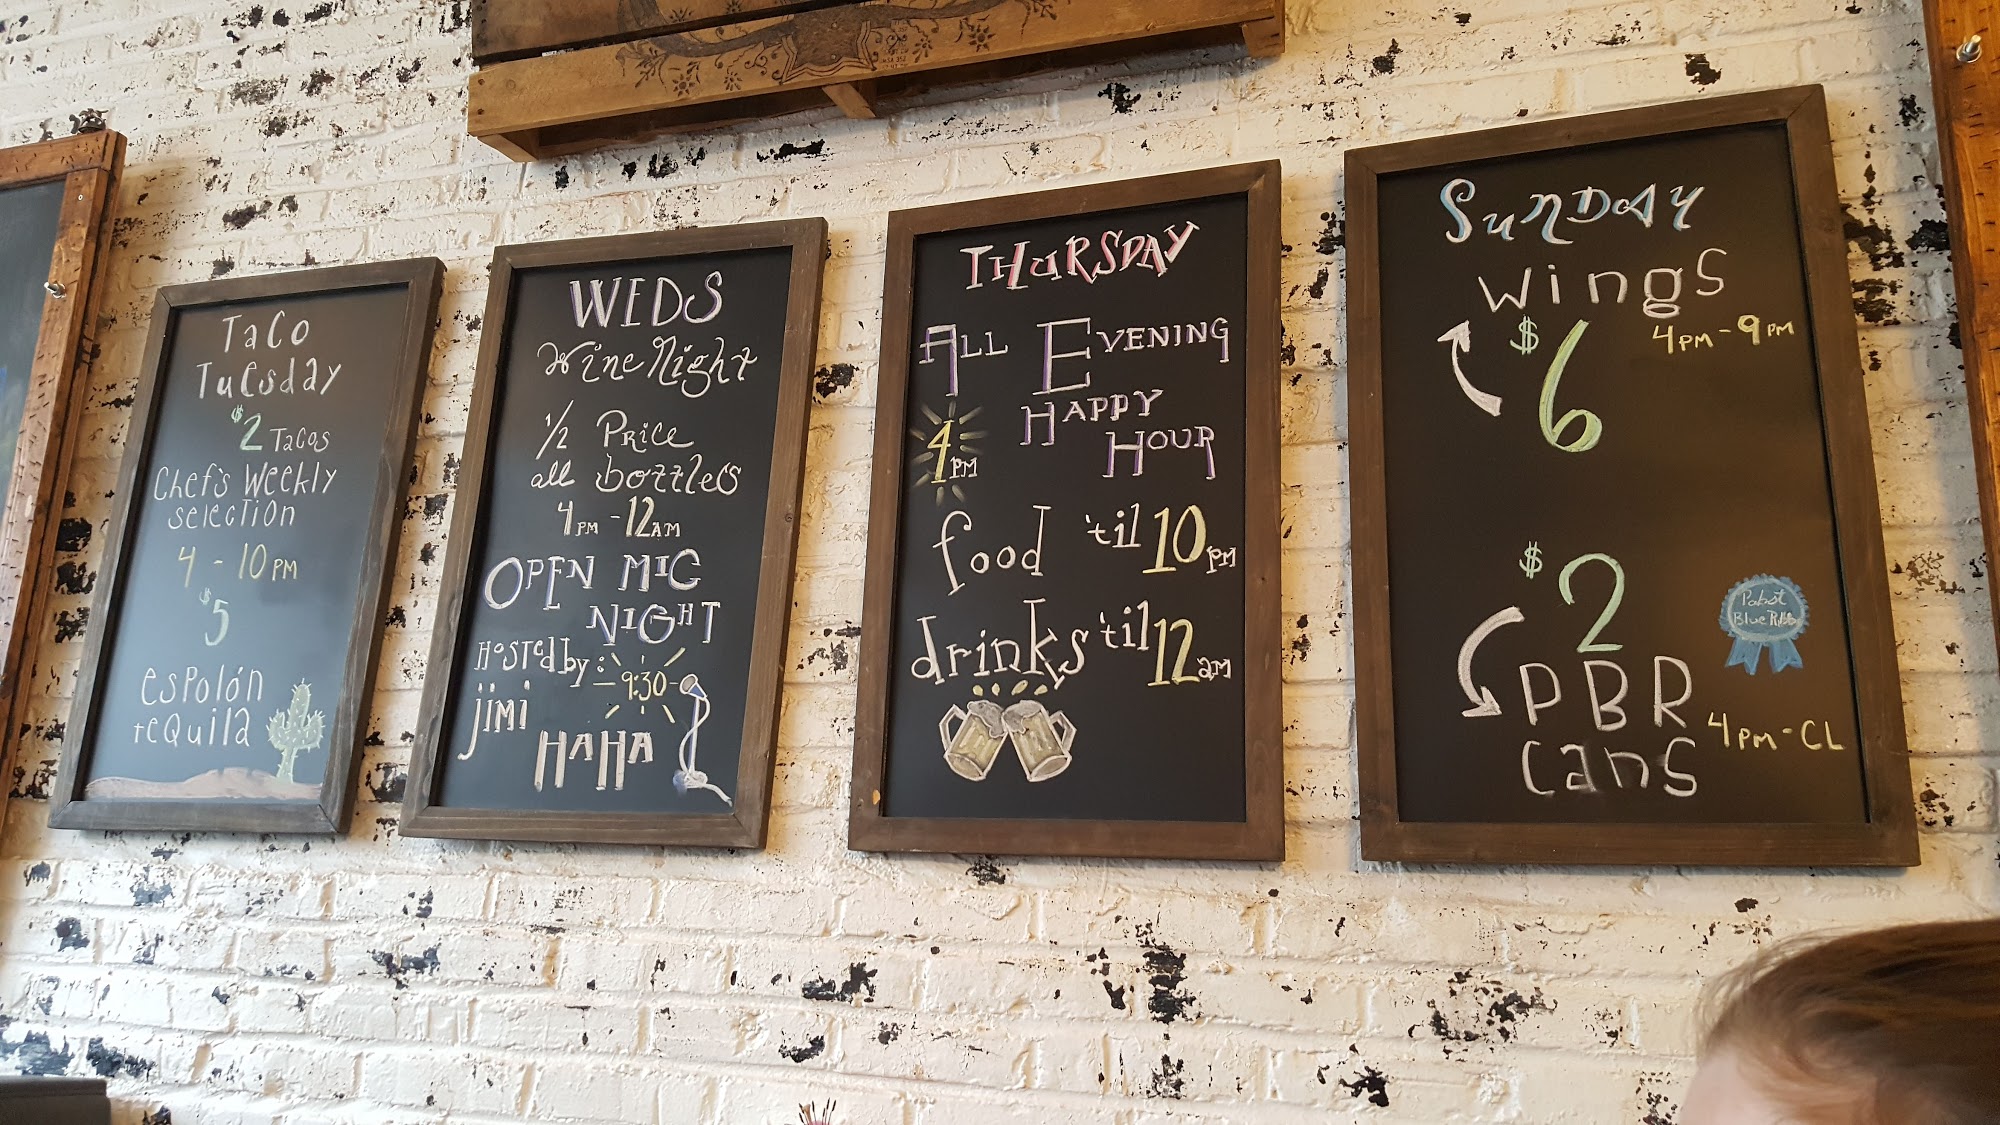 Taco
Tuesday
$2 Tacos
Chef's Weekly
selection
4 - 10 PM
$5
espolón
tequila
WEDS
Wine Night
1/2 Price
all bottles
4PM - 12AM
OPEN MIC
NIGHT
Hosted by:
9:30
jimi
HAHA
THURSDAY
ALL EVENING
HAPPY
HOUR
4PM
food 'til 10PM
drinks 'til 12am
SUNDAY
Wings
$6 4PM - 9PM
$2
Pabst
Blue
PBR
cans 4PM - CL